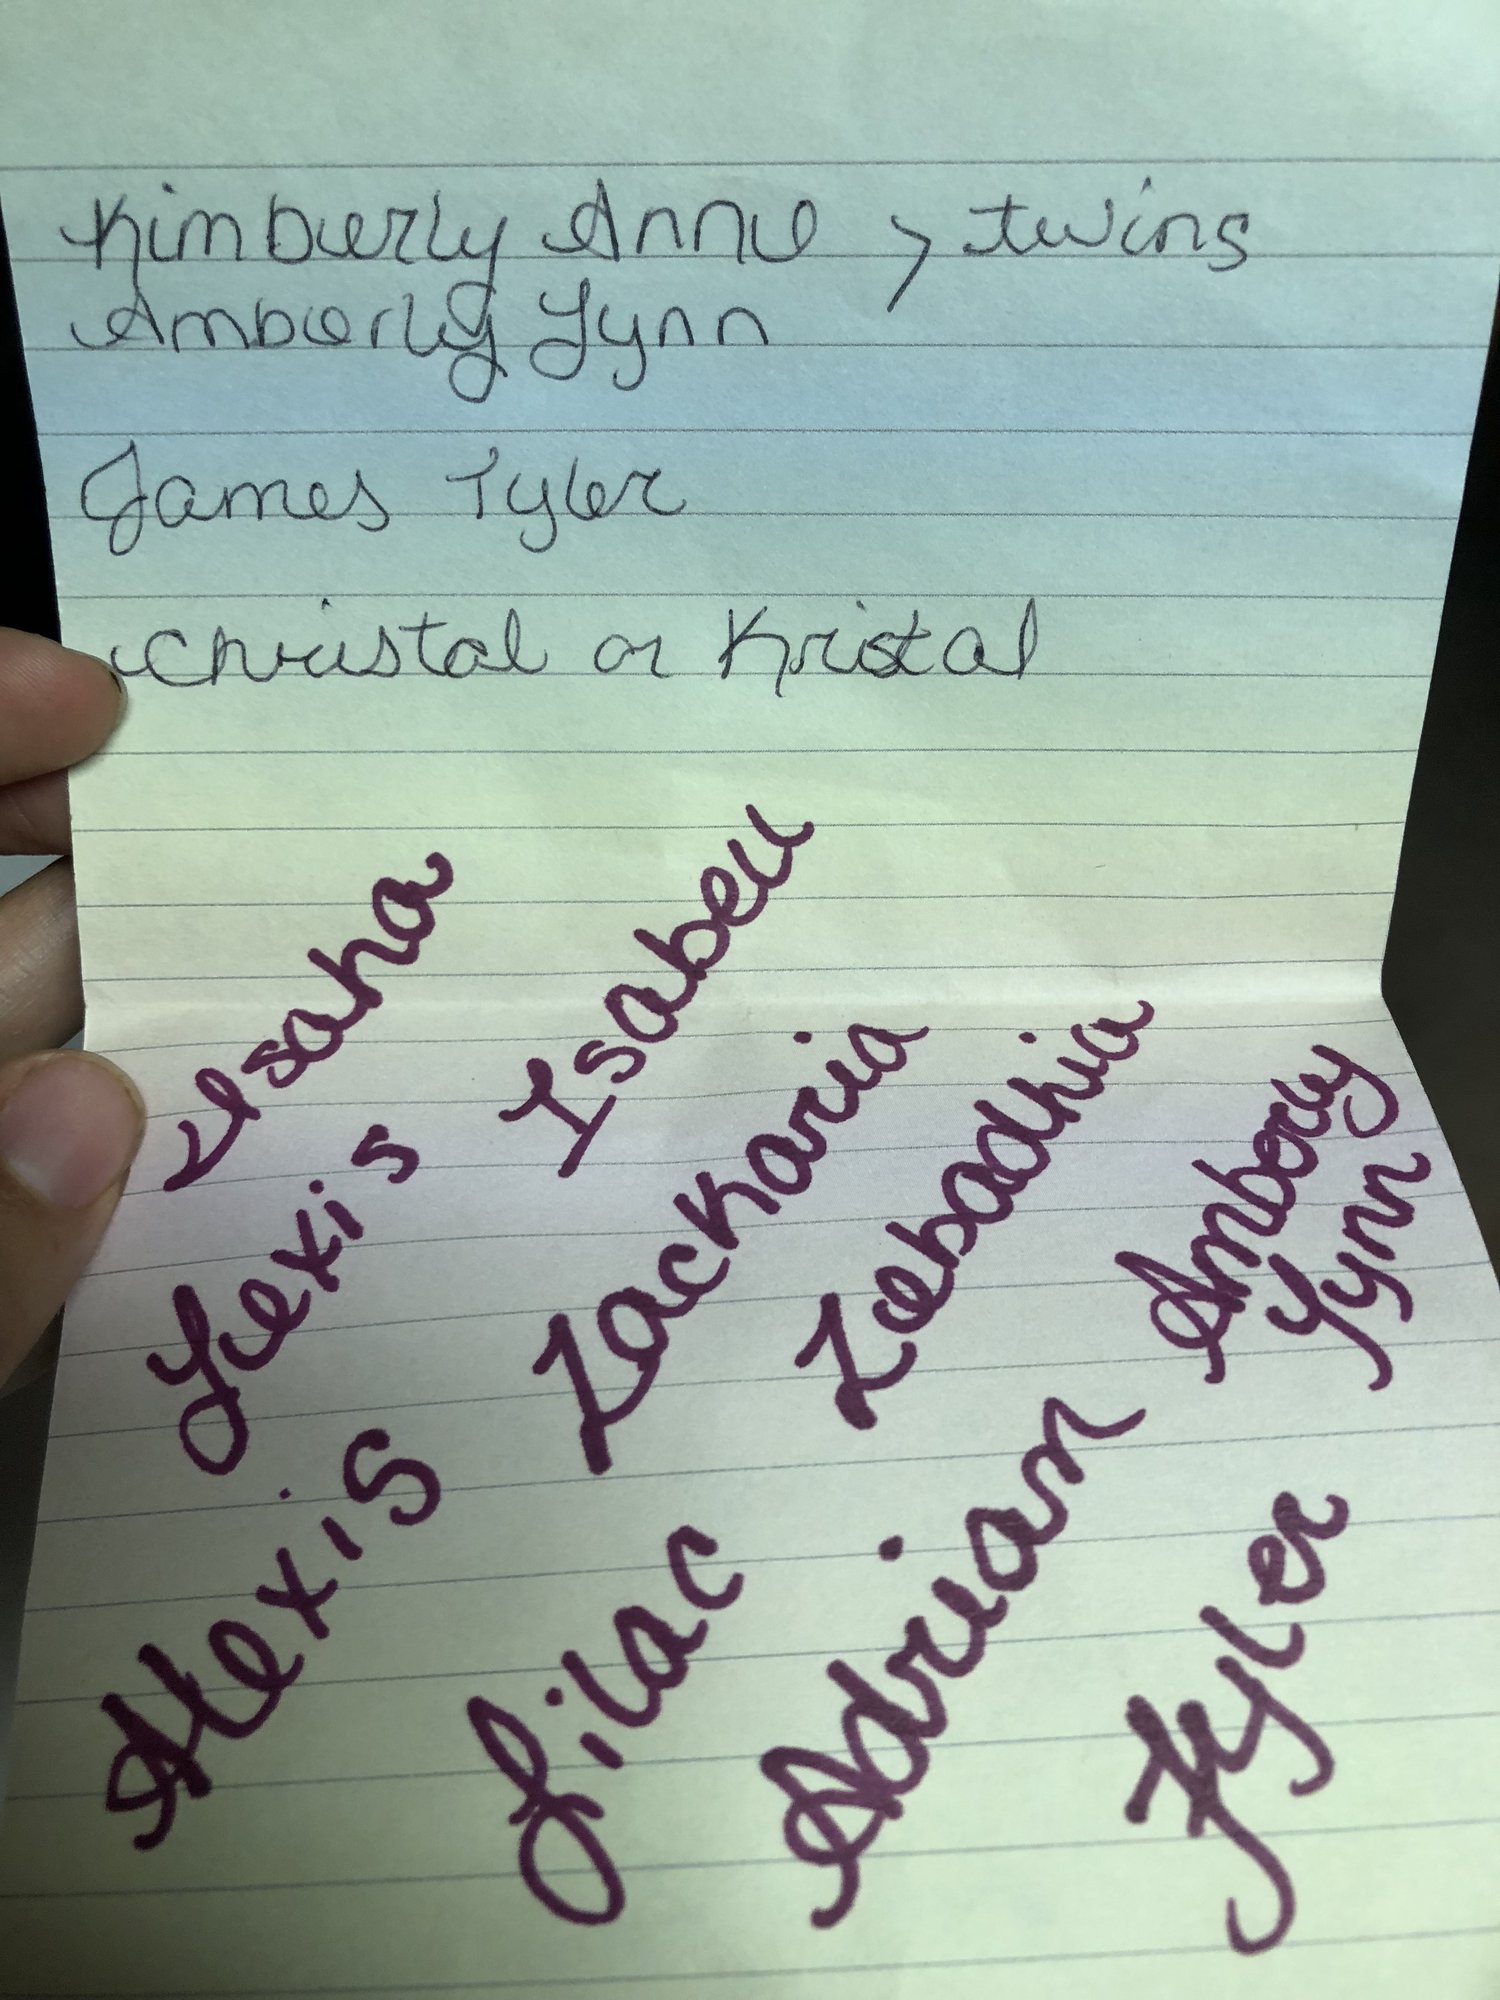 Kimberly Anne > twins
Amberly Lynn
James Tyler
Christal or Kristal
Isaha
Isabell
Lexis
Zackaria
Zebadhia
Amberly
Lynn
Alexis
Lilac
Adrian
Tyler